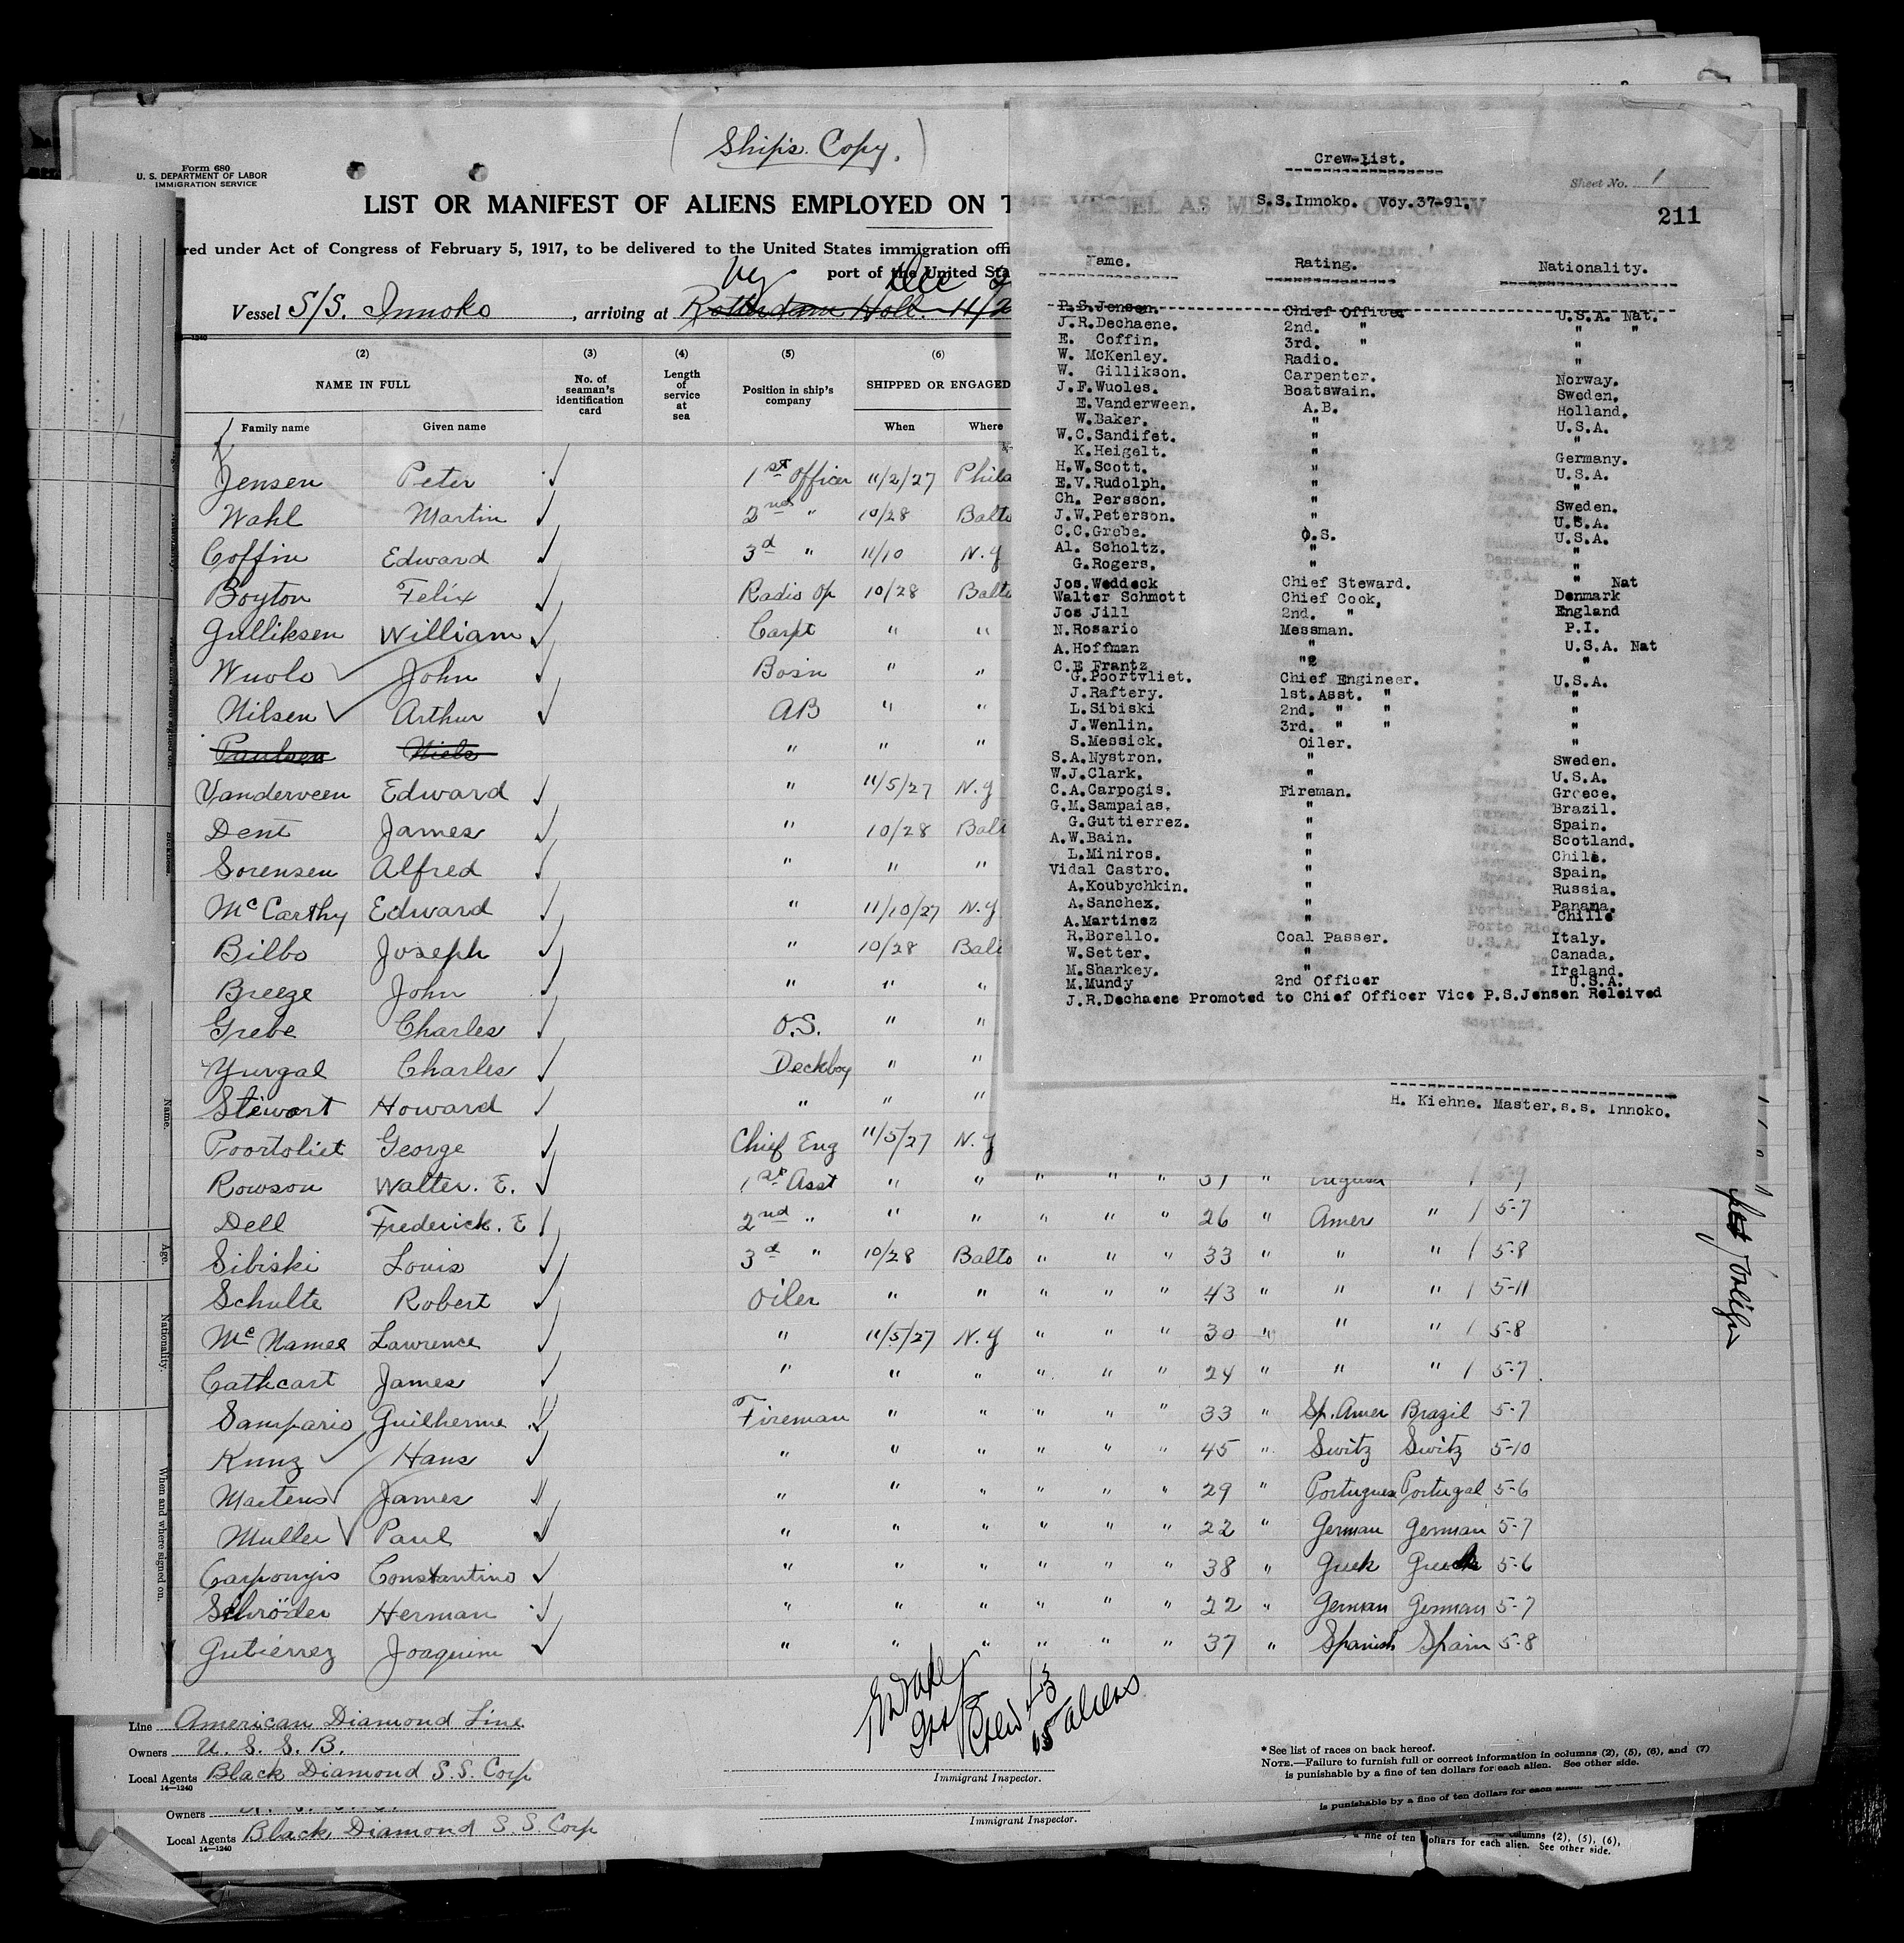 (Ship's Copy.)
Form 680
U. S. DEPARTMENT OF LABOR
IMMIGRATION SERVICE
LIST OR MANIFEST OF ALIENS EMPLOYED ON THE VESSEL AS MEMBERS OF CREW
red under Act of Congress of February 5, 1917, to be delivered to the United States immigration offi
port of the United Sta
Vessel S/S. Innoko, arriving at Rotterdam Holl. 11/2
(2) (3) (4) (5) (6)
NAME IN FULL No. of seaman's identification card Length of service at sea Position in ship's company SHIPPED OR ENGAGED
Family name Given name When Where
Jensen Peter 1st Officer 11/2/27 Phila
Wahl Martin 2nd " 10/28 Balto
Coffin Edward 3d " 11/10 N.Y
Boyton Felix Radio Op 10/28 Balto
Gulliksen William Carpt " "
Wuolo John Bosn " "
Nilsen Arthur AB " "
Paulsen Niels " " "
Vanderveen Edward " 11/5/27 N.Y
Dent James " 10/28 Balt
Sorensen Alfred " " "
McCarthy Edward " 11/10/27 N.Y
Bilbo Joseph " 10/28 Balt
Breeze John " " "
Grebe Charles O.S. " "
Yurgal Charles Deckboy " "
Stewart Howard " " "
Poortvliet George Chief Eng 11/5/27 N.Y
Rowson Walter. E. 1st Asst " " " " " 37 "
Dell Frederick. E 2nd " " " " " " 26 " Amer " 1 5-7
Sibiski Louis 3d " 10/28 Balto " " " 33 " " " 1 5-8
Schulte Robert Oiler " " " " " 43 " " " 1 5-11
McNamee Lawrence " 11/5/27 N.Y " " " 30 " " " 1 5-8
Cathcart James " " " " " " 24 " " " 1 5-7
Sampario Guilherme Fireman " " " " " 33 " Sp. Amer Brazil 5-7
Kunz Hans " " " " " " 45 " Switz Switz 5-10
Martens James " " " " " " 29 " Portugues Portugal 5-6
Muller Paul " " " " " " 22 " German German 5-7
Carponyis Constantino " " " " " " 38 " Greek Greek 5-6
Schröder Herman " " " " " " 22 " German German 5-7
Gutierrez Joaquim " " " " " " 37 " Spanish Spain 5-8
Crew 43
15 aliens
Line American Diamond Line
Owners U. S. S. B.
Local Agents Black Diamond S.S. Corp
14—1240
Immigrant Inspector.
*See list of races on back hereof.
NOTE.—Failure to furnish full or correct information in columns (2), (5), (6), and (7)
is punishable by a fine of ten dollars for each alien. See other side.
Owners
Local Agents Black Diamond S.S. Corp
14—1240
Immigrant Inspector.
is punishable by a fine of ten dollars for each alien.
columns (2), (5), (6),
a fine of ten dollars for each alien. See other side.
Crew-List.
Sheet No. 1
S.S.Innoko. Voy.37-91.
211
Name. Rating. Nationality.
P.S.Jensen. Chief Officer U.S.A. Nat.
J.R.Dechaene. 2nd. " " "
E. Coffin. 3rd. " "
W. McKenley. Radio. "
W. Gillikson. Carpenter. Norway.
J.F.Wuoles. Boatswain. Sweden.
E.Vanderween. A.B. Holland.
W.Baker. " U.S.A.
W.C.Sandifet. " "
K.Heigelt. " Germany.
H.W.Scott. " U.S.A.
E.V.Rudolph. " "
Ch. Persson. " Sweden.
J.W.Peterson. " U.S.A.
C.C.Grebe. O.S. U.S.A.
Al. Scholtz. " "
G.Rogers. " "
Jos.Weddeck Chief Steward. " Nat
Walter Schmott Chief Cook, Denmark
Jos Jill 2nd. " England
N.Rosario Messman. P.I.
A.Hoffman " U.S.A. Nat
C.E Frantz "2 "
G.Poortvliet. Chief Engineer. U.S.A.
J.Raftery. 1st.Asst. " "
L.Sibiski 2nd. " " "
J.Wenlin. 3rd. " " "
S.Messick. Oiler. "
S.A.Nystron. " Sweden.
W.J.Clark. " U.S.A.
C.A.Carpogis. Fireman. Greece.
G.M.Sampaias. " Brazil.
G.Guttierrez. " Spain.
A.W.Bain. " Scotland.
L.Miniros. " Chile.
Vidal Castro. " Spain.
A.Koubychkin. " Russia.
A.Sanchez. " Panama.
A.Martinez " Chille
R.Borello. Coal Passer. Italy.
W.Setter. " Canada.
M.Sharkey. " Ireland.
M.Mundy 2nd Officer U.S.A.
J.R.Dechaene Promoted to Chief Officer Vice P.S.Jensen Releived
H. Kiehne. Master.s.s. Innoko.
Name.
Age.
Nationality.
When and where signed on.